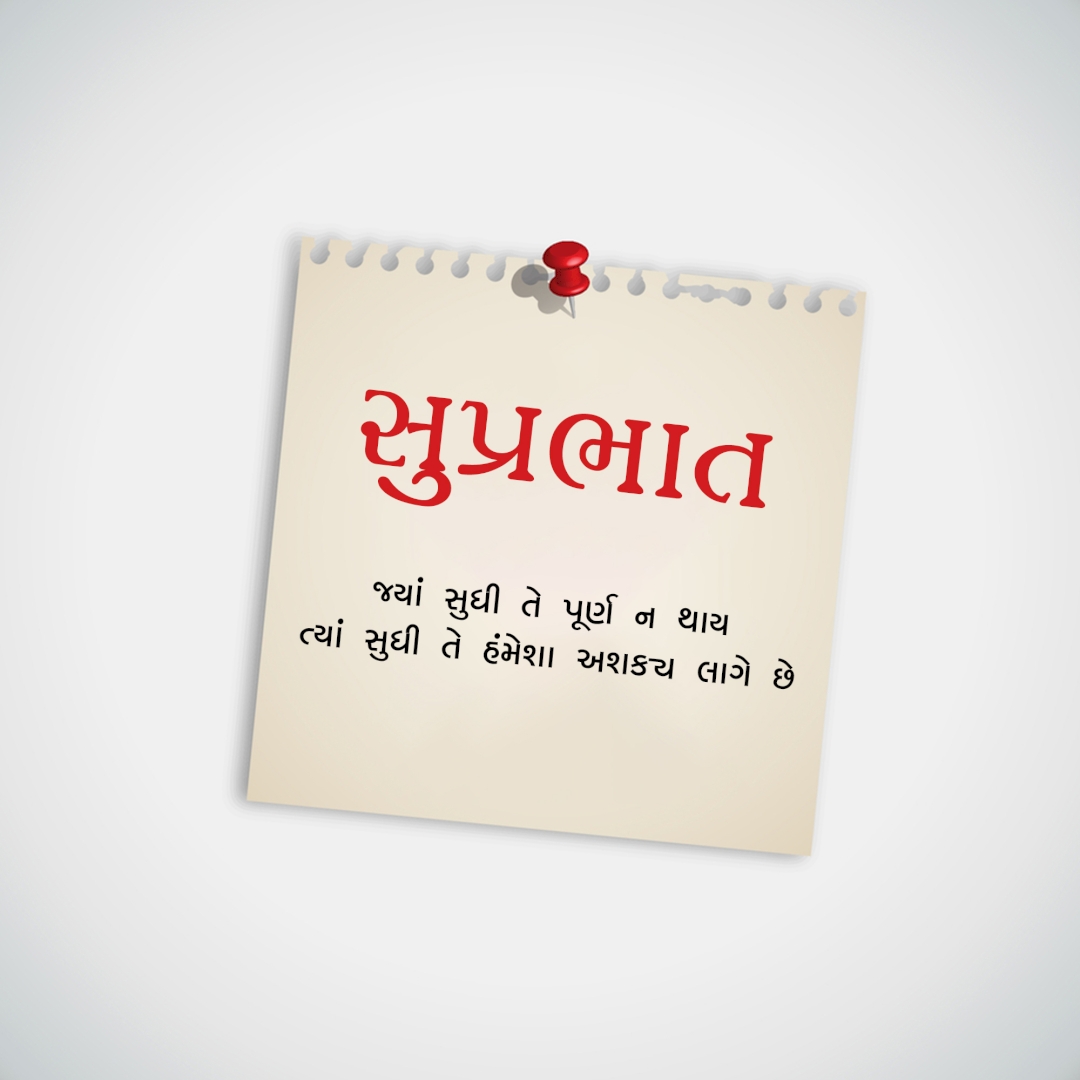 સુપ્રભાત
જ્યાં સુધી તે પૂર્ણ ન થાય
ત્યાં સુધી તે હંમેશા અશક્ય લાગે છે